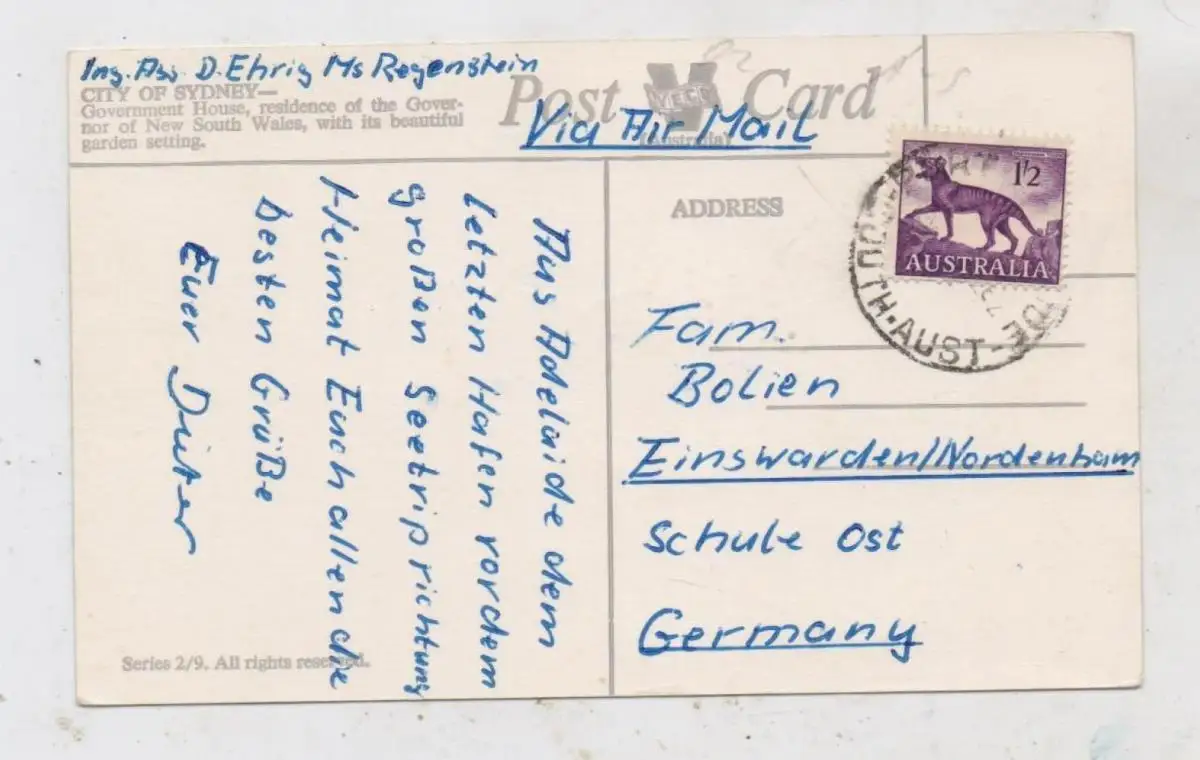 Ing. Ass. D. Ehrig Ms Regenstein
CITY OF SYDNEY—
Government House, residence of the Gover-
nor of New South Wales, with its beautiful
garden setting.
Post Card
(Australia)
Via Air Mail
Aus Adelaide dem
letzten Hafen vor dem
großen Seetrip richtung
Heimat Euch allen die
besten Grüße
Euer Dieter
Series 2/9. All rights reserved.
ADDRESS
1/2
AUSTRALIA
SOUTH·AUST-
Fam.
Bolien
Einswarden/Nordenham
Schule Ost
Germany